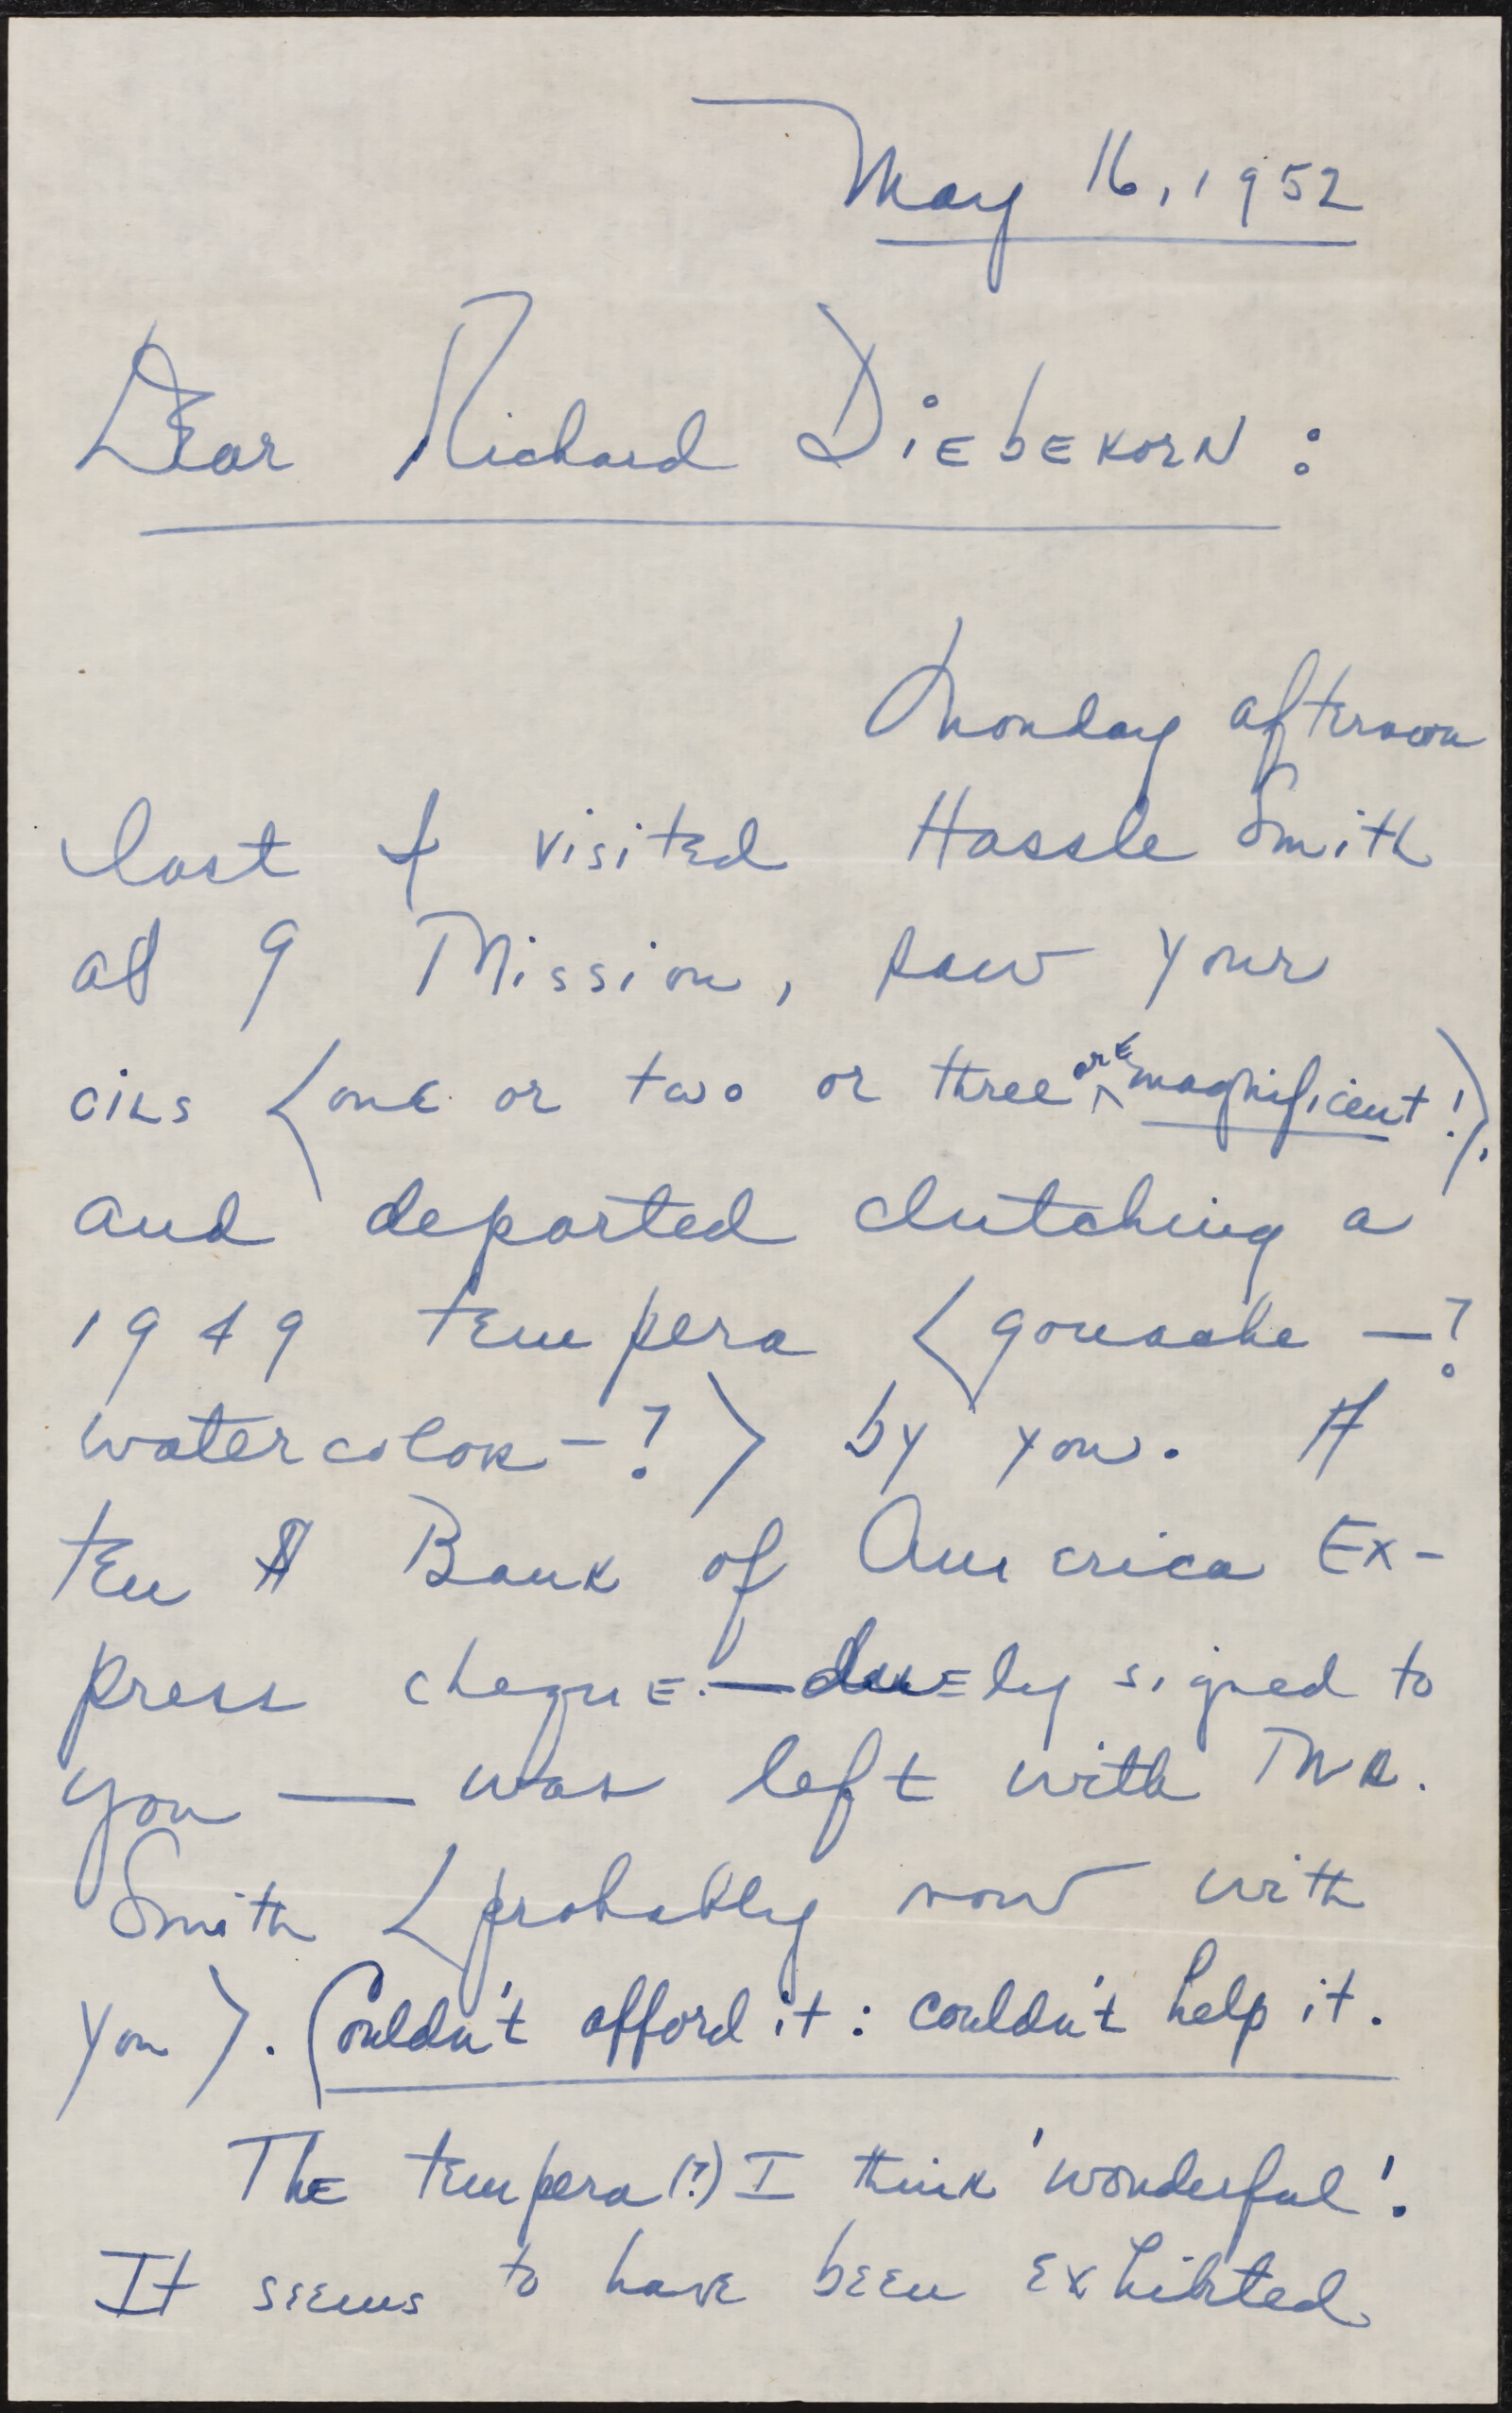 May 16, 1952
Dear Richard Diebekorn:
Monday afternoon
last I visited Hassle Smith
at 9 Mission, saw your
oils (one or two or three are magnificent!),
and departed clutching a
1949 tempera (gouache —?
watercolor —?) by you. A
ten $ Bank of America Ex-
press cheque — duely signed to
you — was left with Mr.
Smith (probably now with
you). Couldn't afford it: couldn't help it.
The tempera (?) I think 'wonderful'.
It seems to have been exhibited